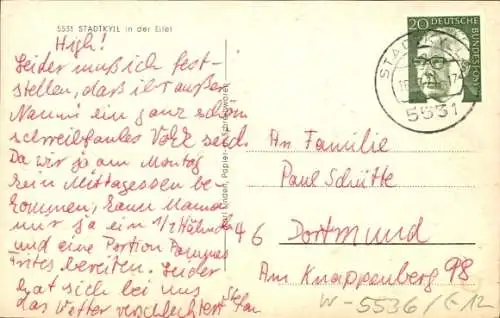 5531 STADTKYLL in der Eifel
High!
Leider muß ich fest-
stellen, daß ihr außer
Nanni ein ganz schön
schreibfaules Volk seid.
Da wir ja am Montag
kein Mittagessen be-
kommen, kann Mama
mir ja ein 1/2 Hähnchen
und eine Portion Pommes
frites bereiten. Leider
hat sich bei uns
das Wetter verschlechtert
Stefan
20 DEUTSCHE
BUNDESPOST
5531
An Familie
Paul Schütte
46 Dortmund
Am Knappenberg 98
W-5536/E12